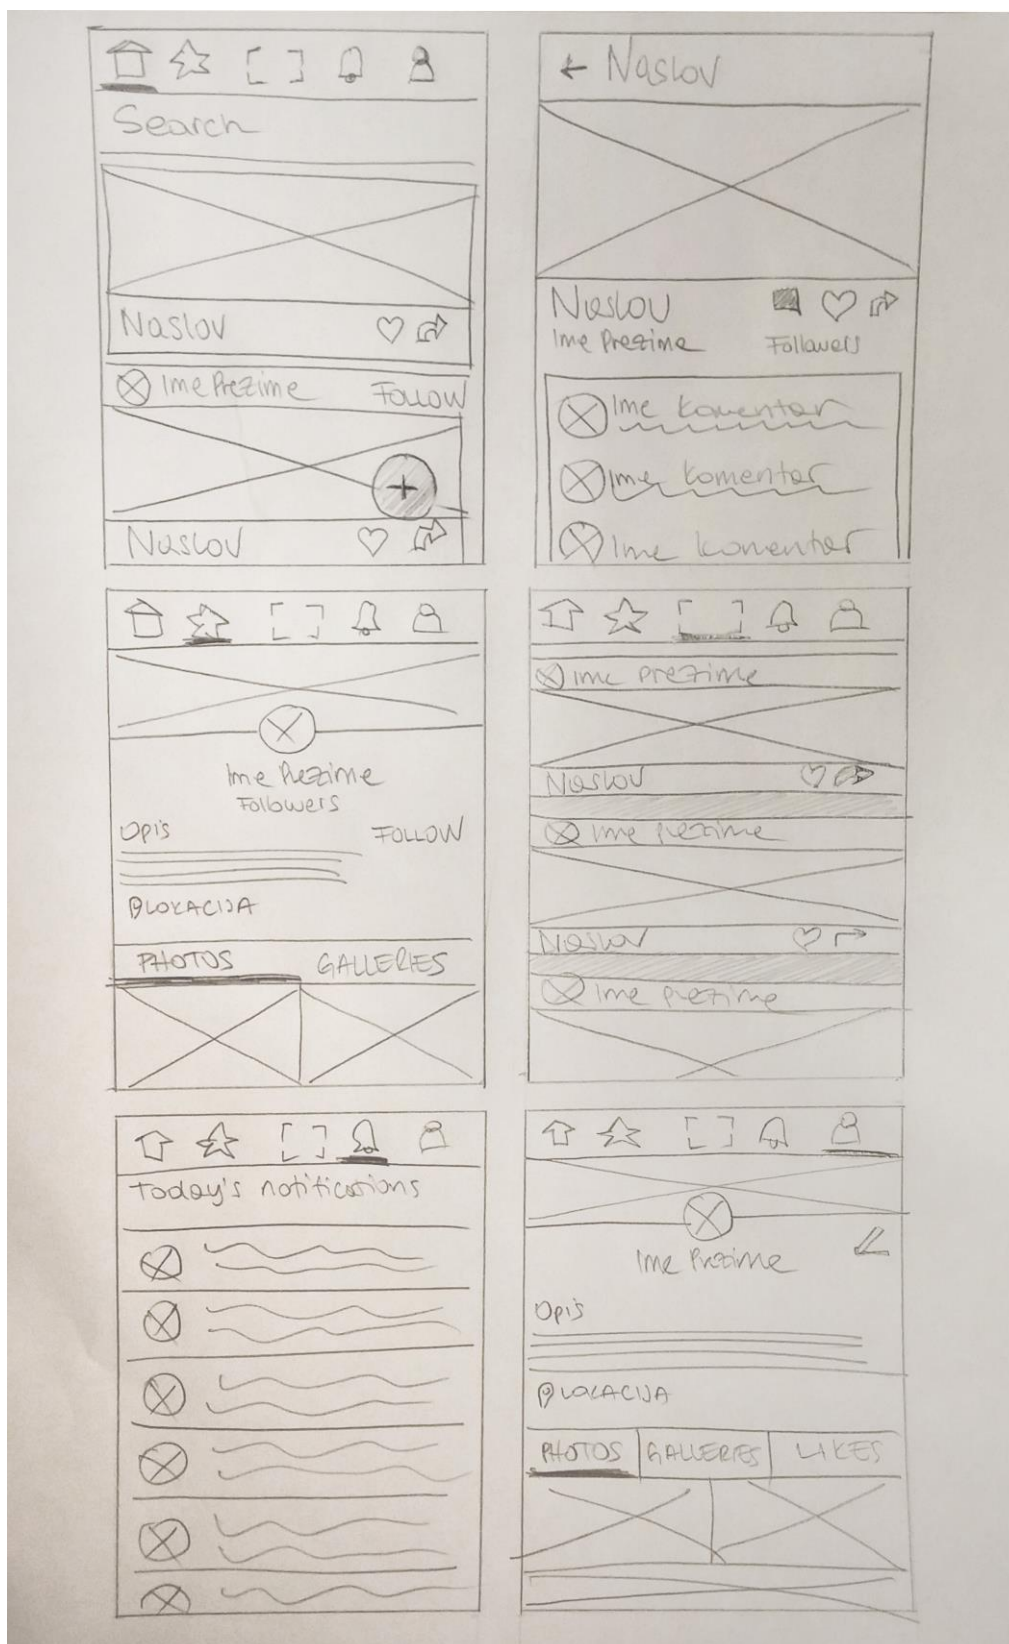 Search
Naslov
Ime Prezime FOLLOW
Naslov
Naslov
Naslov
Ime Prezime Followers
Ime komentar
Ime komentar
Ime komentar
Ime Prezime
Followers
Opis FOLLOW
LOKACIJA
PHOTOS GALLERIES
Ime prezime
Naslov
Ime prezime
Naslov
Ime prezime
Today's notifications
Ime Prezime
Opis
LOKACIJA
PHOTOS GALLERIES LIKES